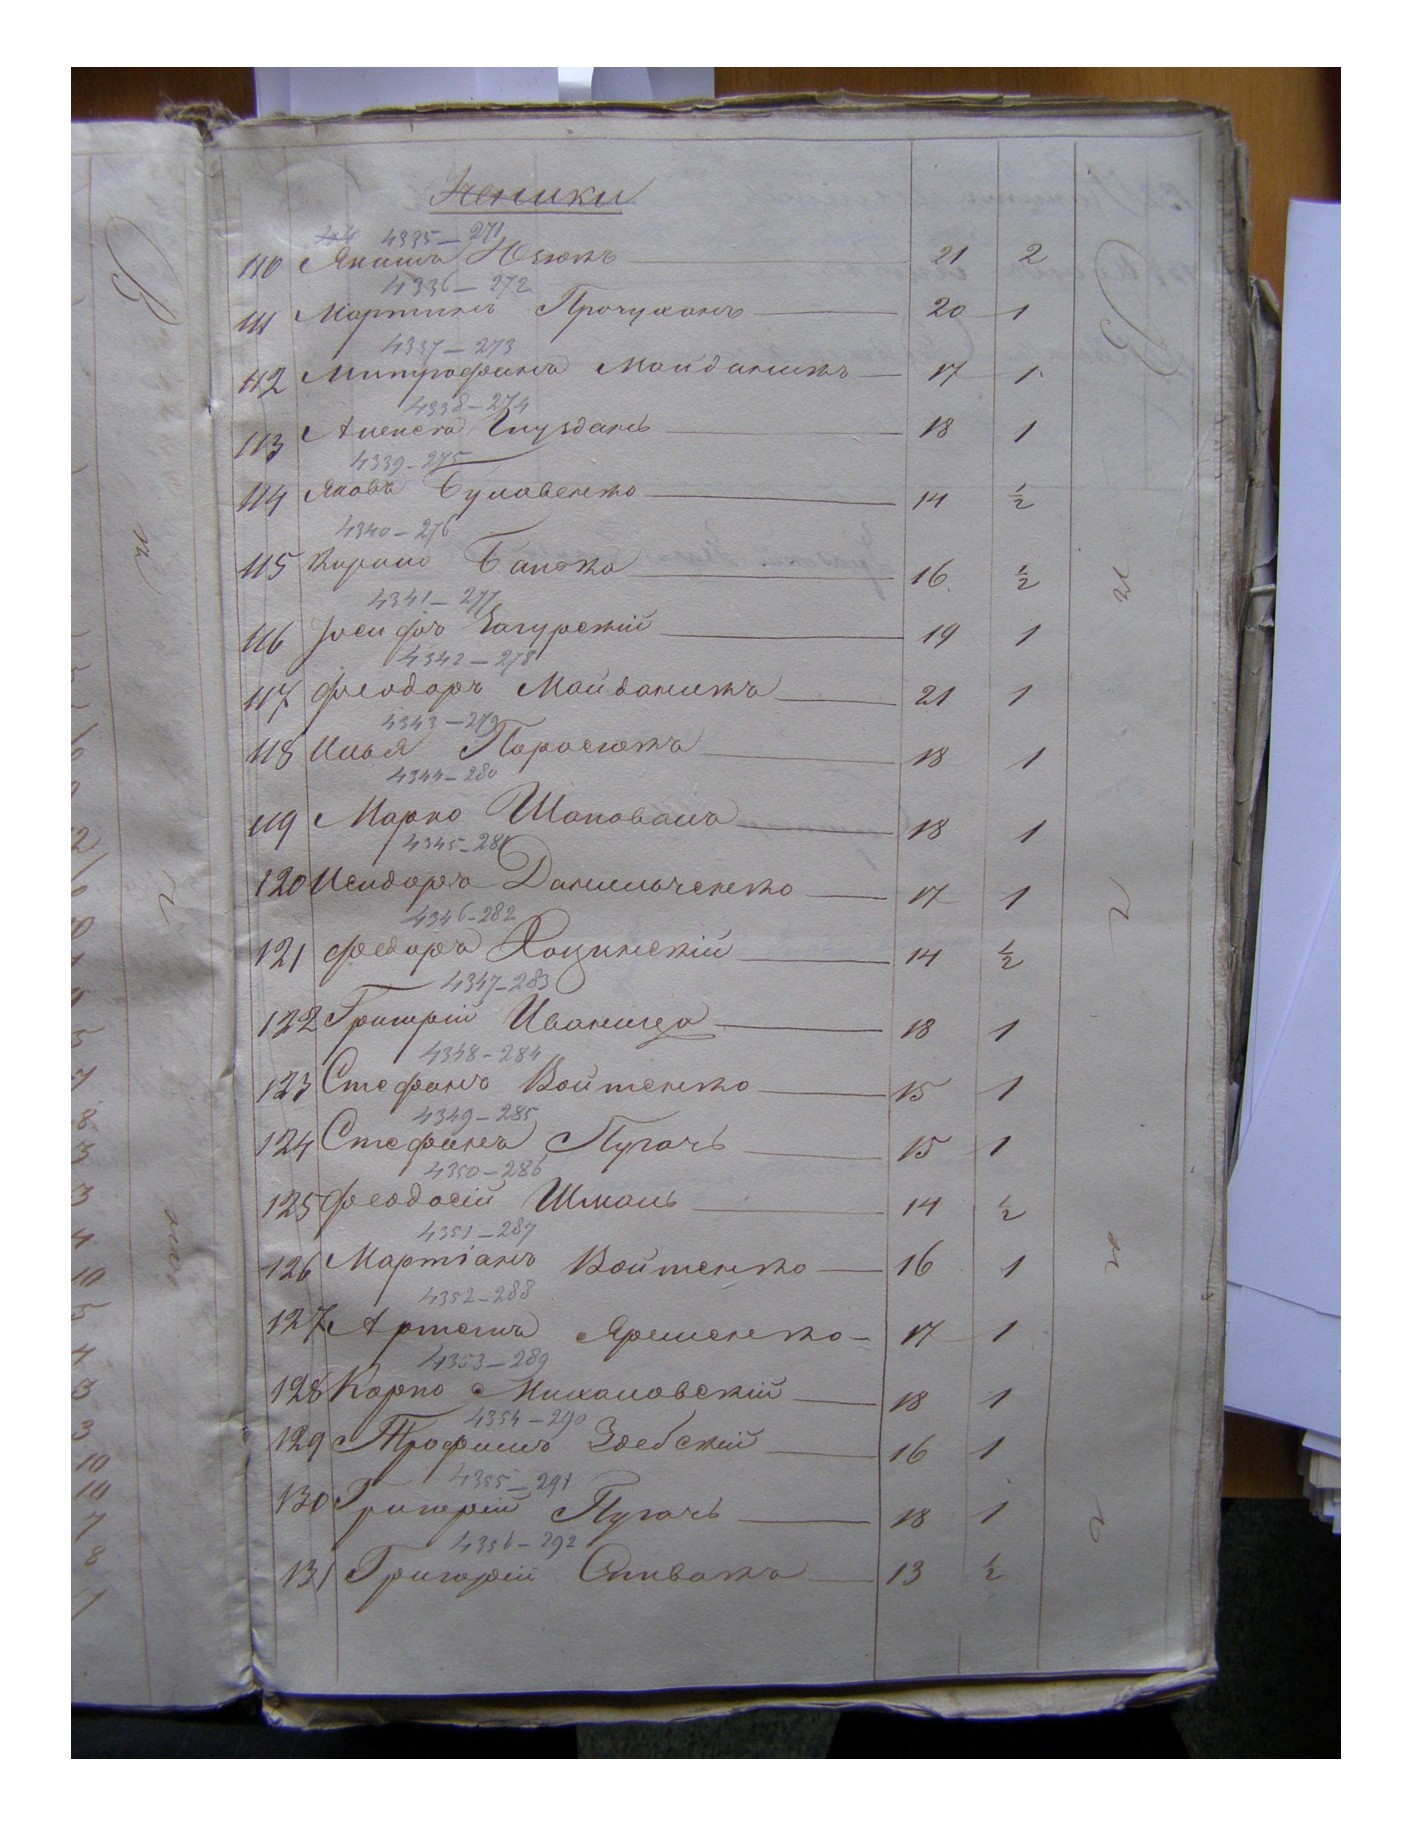 Ученики
4335-271
110 Якимъ Юзюкъ 21 2
4336-272
111 Мартинъ Прочуханъ 20 1
4337-273
112 Митрофанъ Майданикъ 17 1
4338-274
113 Алексей Гнуздань 18 1
4339-275
114 Яковъ Буловенко 14 ½
4340-276
115 Кирило Балэка 16 ½
4341-277
116 Іосифъ Загурскій 19 1
4342-278
117 Феодоръ Майданикъ 21 1
4343-279
118 Илья Поросюкъ 18 1
4344-280
119 Марко Шаповалъ 18 1
4345-281
120 Исидоръ Данильченко 17 1
4346-282
121 Федоръ Хоцинскій 14 ½
4347-283
122 Григорій Иваница 18 1
4348-284
123 Стефанъ Войтенко 15 1
4349-285
124 Стефанъ Пугачь 15 1
4350-286
125 Феодосій Шмаль 14 ½
4351-287
126 Мартіанъ Войтенко 16 1
4352-288
127 Артемъ Яременко 17 1
4353-289
128 Карпо Михаловскій 18 1
4354-290
129 Трофимъ Здебскій 16 1
4355-291
130 Григорій Пугачь 18 1
4356-292
131 Григорій Спивакъ 13 ½